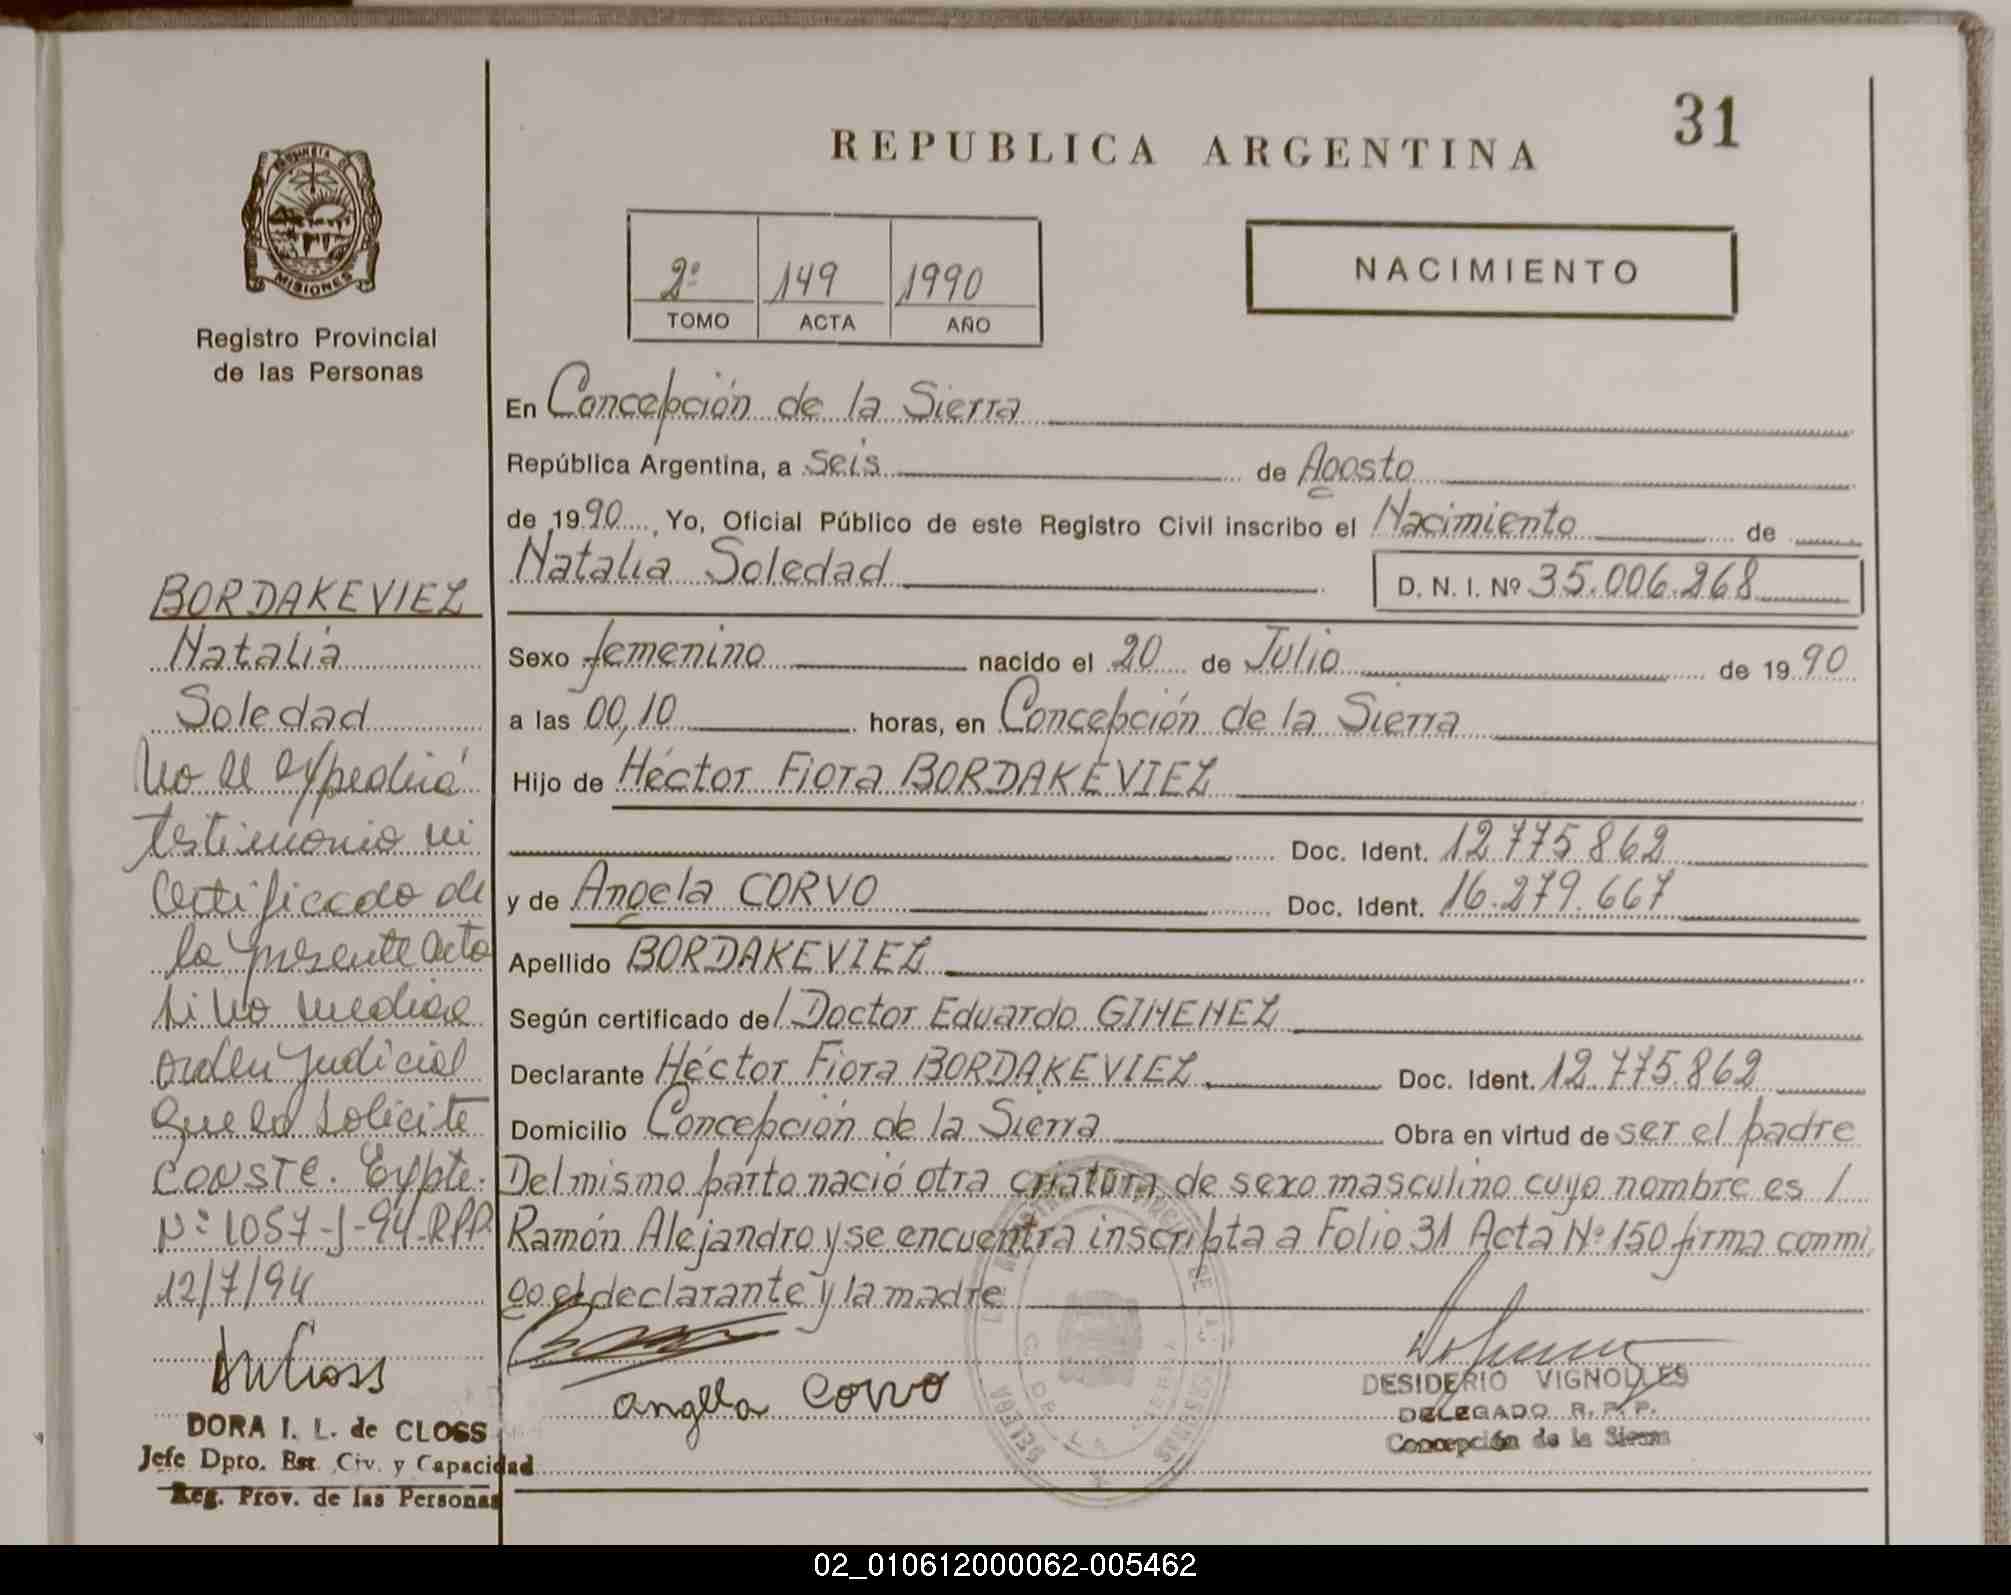 31
REPUBLICA ARGENTINA
PROVINCIA DE
MISIONES
Registro Provincial
de las Personas
2º 149 1990
TOMO ACTA AÑO
NACIMIENTO
En Concepción de la Sierra
República Argentina, a seis de Agosto
de 1990, Yo, Oficial Público de este Registro Civil inscribo el Nacimiento de
Natalia Soledad D. N. I. Nº 35.006.268
Sexo femenino nacido el 20 de Julio de 1990
a las 00,10 horas, en Concepción de la Sierra
Hijo de Héctor Fiora BORDAKEVIEZ
Doc. Ident. 12.775.862
y de Angela CORVO Doc. Ident. 16.279.667
Apellido BORDAKEVIEZ
Según certificado del Doctor Eduardo GIMENEZ
Declarante Héctor Fiora BORDAKEVIEZ Doc. Ident. 12.775.862
Domicilio Concepción de la Sierra Obra en virtud de ser el padre
Del mismo parto nació otra criatura de sexo masculino cuyo nombre es /
Ramón Alejandro y se encuentra inscripta a Folio 31 Acta Nº 150 firma conmi
go el declarante y la madre
angela Corvo
DESIDERIO VIGNOLLES
DELEGADO R. P. P.
Concepción de la Sierra
BORDAKEVIEZ
Natalia
Soledad
No se expedirá
testimonio ni
certificado de
la presente acta
si no mediase
orden judicial
que lo solicite
CONSTE. Expte.
Nº 1057-J-94-RPP.
12/7/94
DORA I. L. de CLOSS
Jefe Dpto. Est. Civ. y Capacidad
Reg. Prov. de las Personas
02_010612000062-005462